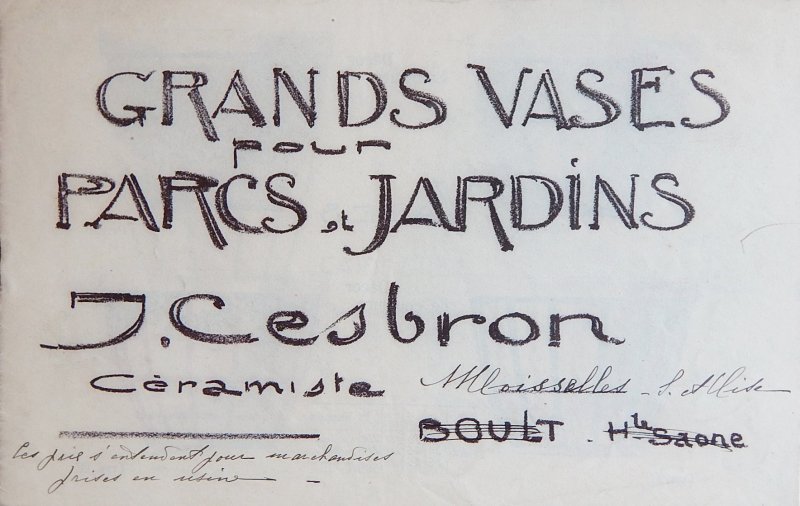 GRANDS VASES
pour
PARCS et JARDINS
J. Cesbron
Céramiste Moisselles - S. et Oise
BOULT. Hte Saone
Les prix s'entendent pour marchandises
prises en usine